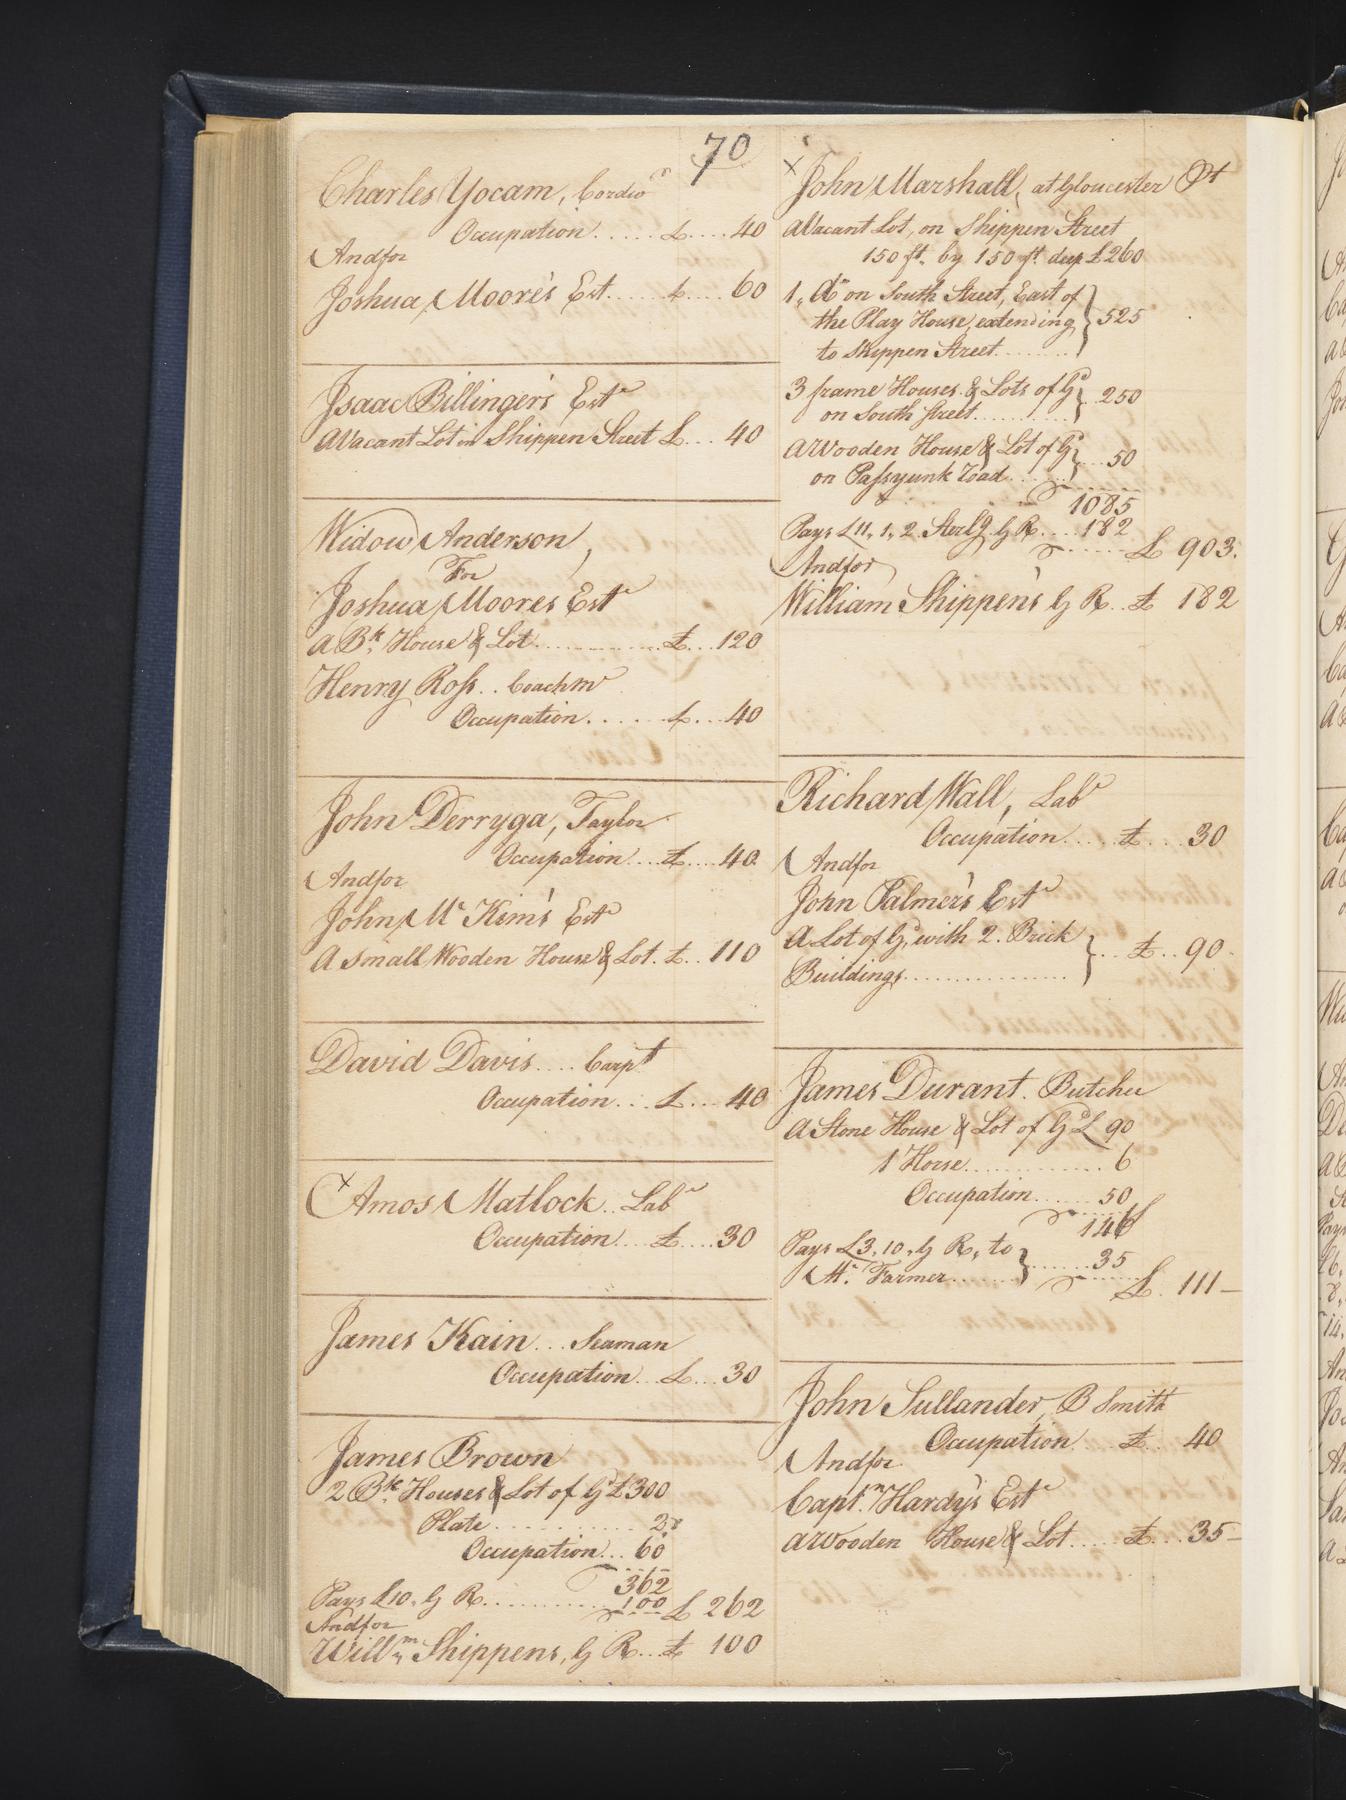 70
Charles Yocam, Cordwr
Occupation......£....40
Andfor
Joshua Moore's Est......£....60
Isaac Billinger's Este
A Vacant Lot on Shippen Street £...40
Widow Anderson,
For
Joshua Moores Este
A Bk. House & Lot..............£...120
Henry Ross.. Coachmr
Occupation......£...40
John Derryga, Taylor
Occupation...£....40
Andfor
John Mc Kim's Este
A small Wooden House & Lot. £...110
David Davis.... Carpt
Occupation...£....40
x Amos Matlock.. Labr
Occupation...£....30
James Kain... Seaman
Occupation...£...30
James Brown
2 Bk. Houses & Lot of Gd £300
Plate...........2
Occupation...60
362
Pays £10, G R............100 £ 262
Andfor
Willm Shippens, G R...£ 100
x John Marshall, at Gloucester Pt
A Vacant Lot, on Shippen Street
150 ft. by 150 ft deep £260
1, do on South Street, East of
the Play House, extending } 525
to Shippen Street.........
3 frame Houses & Lots of Gd } 250
on South Street............
A Wooden House & Lot of Gd } 50
on Passyunk Road......
1085
Pays £11,1,2 Sterlg. G R....182
£ 903.
Andfor
William Shippen's G R...£ 182
Richard Wall, Labr
Occupation.....£....30
Andfor
John Palmer's Este
A Lot of Gd, with 2. Brick } ...£..90
Buildings..................
James Durant. Butcher
A Stone House & Lot of Gd £ 90
1 Horse..............6
Occupation......50
146
Pays £3,10, G R, to } ......35
Mr. Farmer......
£. 111
John Sullander, B Smith
Occupation...£...40
Andfor
Captn. Hardy's Este
A Wooden House & Lot.....£...35